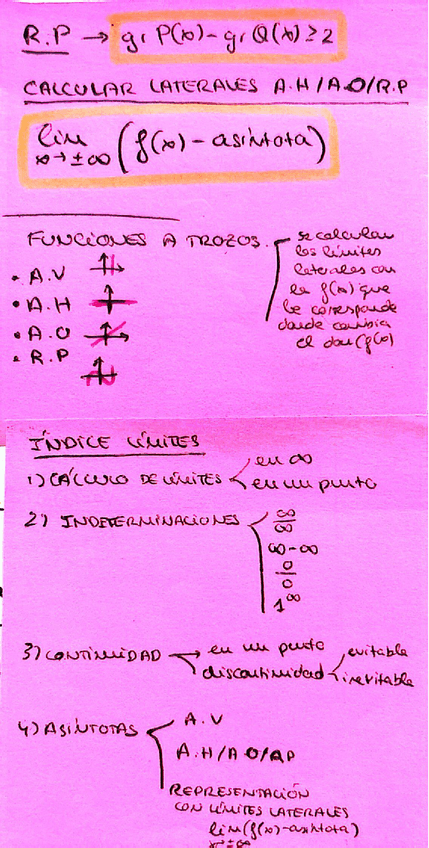 R.P → gr P(x) - gr Q(x) ≥ 2
CALCULAR LATERALES A.H/A.O/R.P
lim x→±∞ (f(x) - asíntota)
FUNCIONES A TROZOS.
se calculan
los límites
laterales con
la f(x) que
le corresponde
donde cambia
el dom(f(x))
• A.V
• A.H
• A.O
• R.P
ÍNDICE LÍMITES
1) CÁLCULO DE LÍMITES
en ∞
en un punto
2) INDETERMINACIONES
∞/∞
∞-∞
0/0
1^∞
3) CONTINUIDAD → en un punto
discontinuidad
evitable
inevitable
4) ASÍNTOTAS
A.V
A.H/A.O/RP
REPRESENTACIÓN
CON LÍMITES LATERALES
lim (f(x)-asíntota)
x→±∞